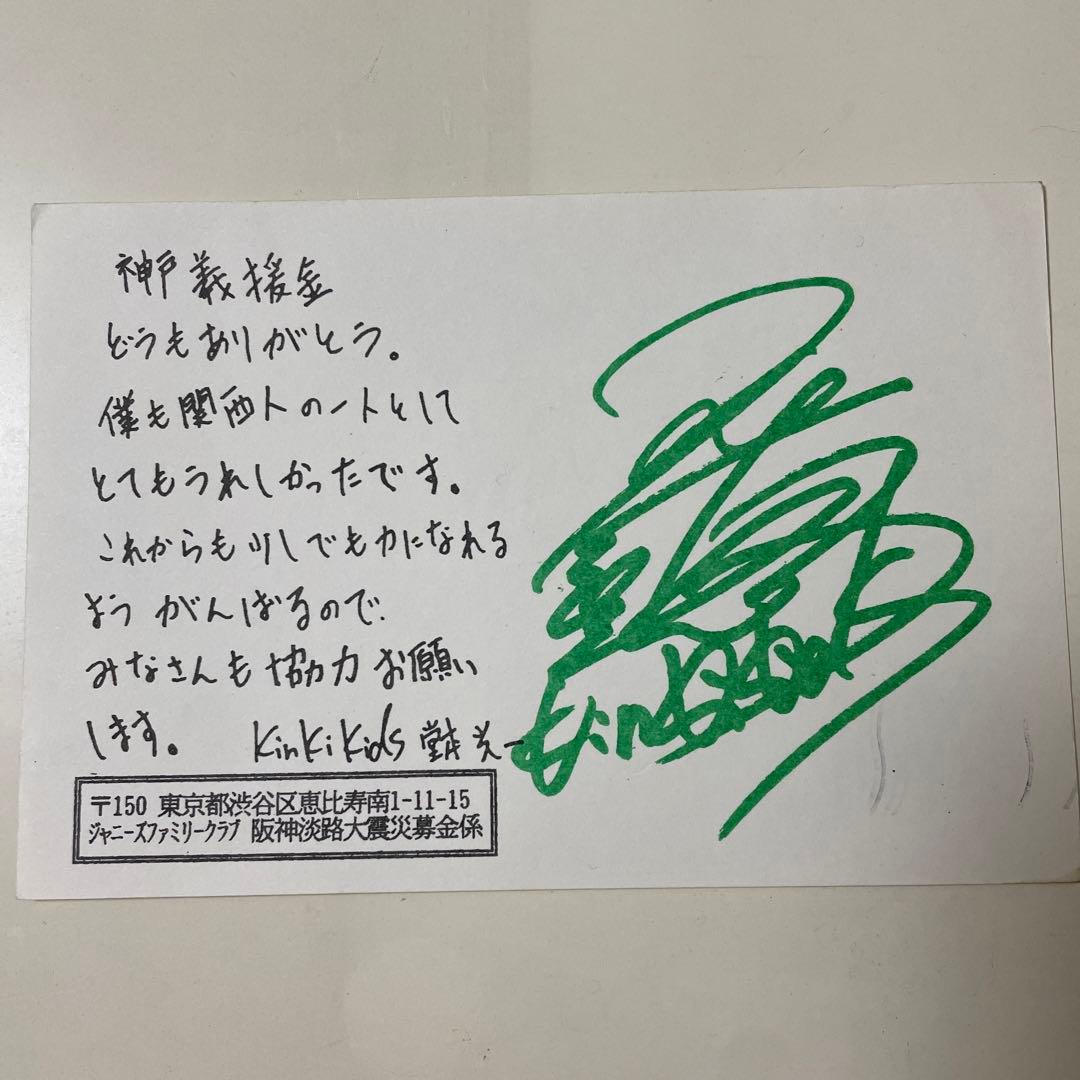 神戸義援金
どうもありがとう。
僕も関西人の一人として
とてもうれしかったです。
これからも少しでも力になれる
よう がんばるので、
みなさんも協力お願い
します。 KinKi Kids 堂本光一
KinKi Kids
〒150 東京都渋谷区恵比寿南1-11-15
ジャニーズファミリークラブ 阪神淡路大震災募金係